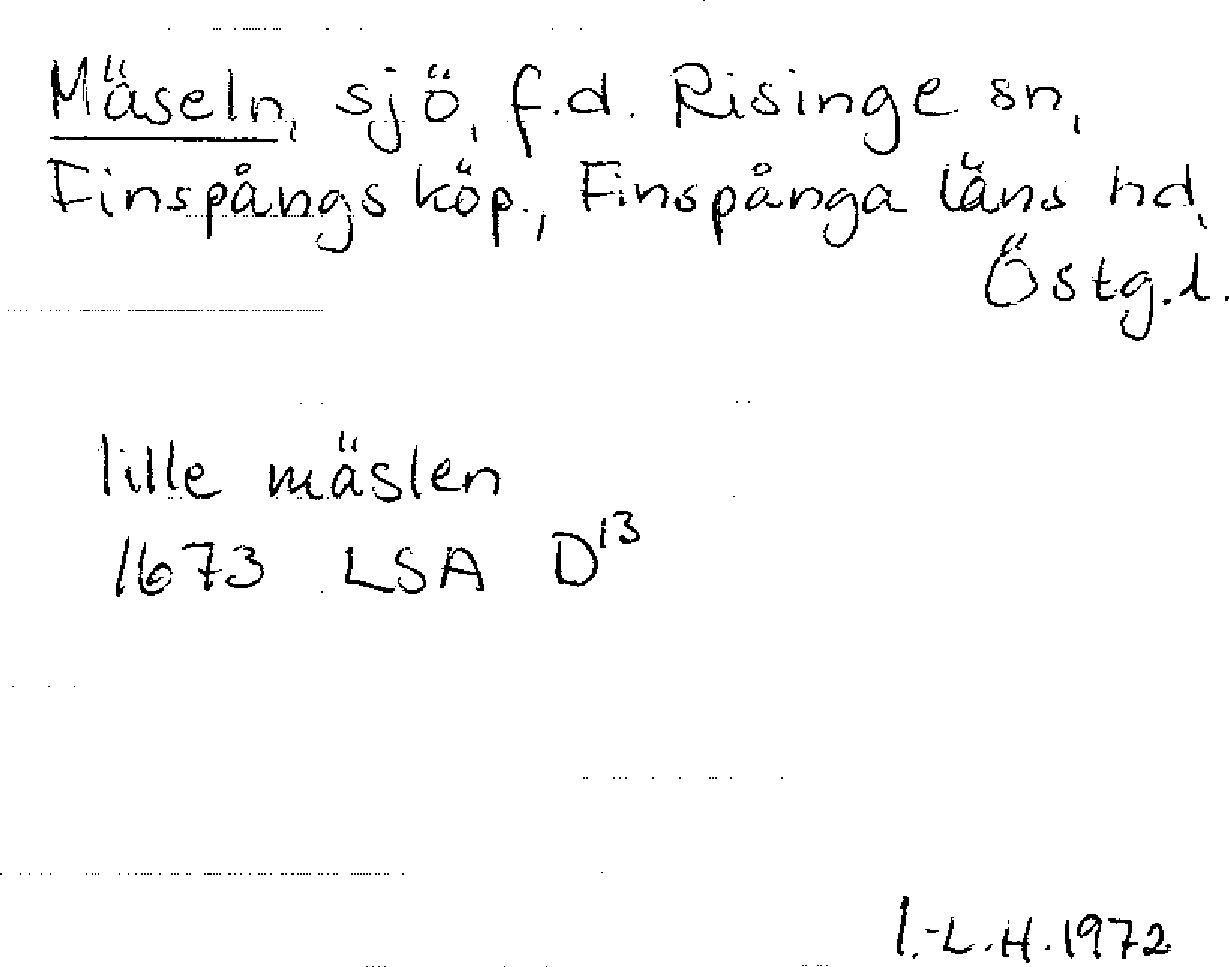 Mäseln, sjö, f.d. Risinge sn,
Finspångs köp., Finspånga läns hd,
Östg.l.
lille mäslen
1673 LSA D¹³
I.-L.H. 1972